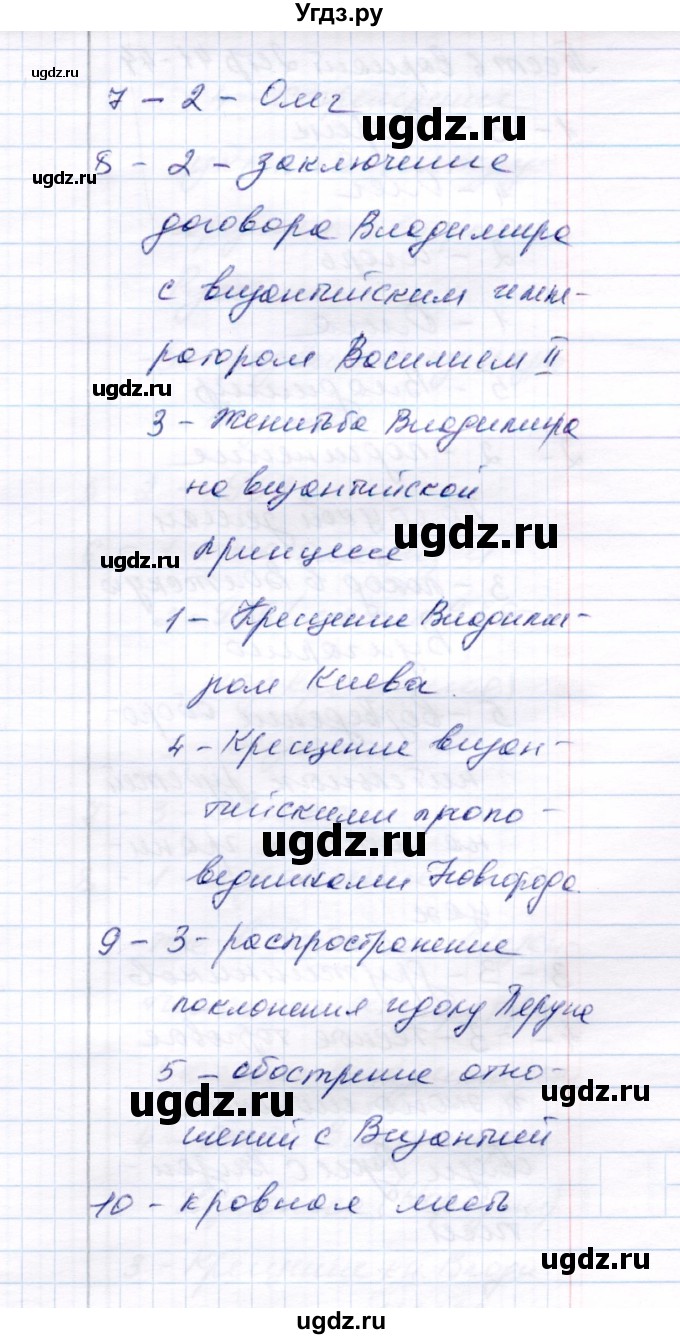 Угдз.ру
ugdz.ru
7 - 2 - Олег
ugdz.ru
8 - 2 - заключение
ugdz.ru
договора Владимира
с византийским импе-
ратором Василием II
ugdz.ru
3 - Женитьба Владимира
на византийской
ugdz.ru
принцессе
ugdz.ru
1 - Крещение Владими-
ром Киева.
4 - Крещение визан-
тийскими пропо-
ugdz.ru
ведниками Новгорода.
9 - 3 - распространение
поклонения идолу Перуна
5 - обострение отно-
ugdz.ru
ugdz.ru
шений с Византией
10 - кровная месть
ugdz.ru
ugdz.ru